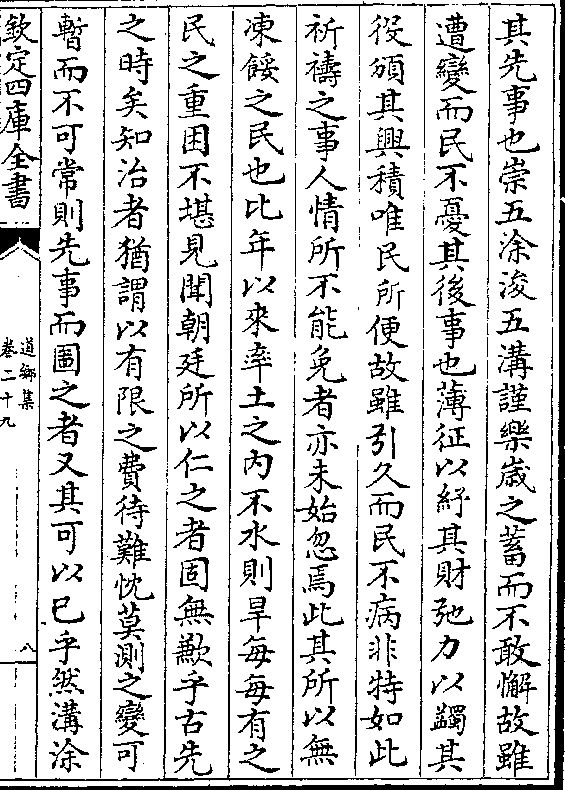 其先事也崇五涂浚五溝謹樂歳之蓄而不敢懈故雖
遭變而民不憂其後事也薄征以紓其財弛力以蠲其
役頒其興積唯民所便故雖引久而民不病非特如此
祈禱之事人情所不能免者亦未始忽焉此其所以無
凍餒之民也比年以來率土之内不水則旱每每有之
民之重困不堪見聞朝廷所以仁之者固無歉乎古先
之時矣知治者猶謂以有限之費待難忱莫測之變可
暫而不可常則先事而圖之者又其可以已乎然溝涂
欽定四庫全書
道鄉集
卷二十九
八